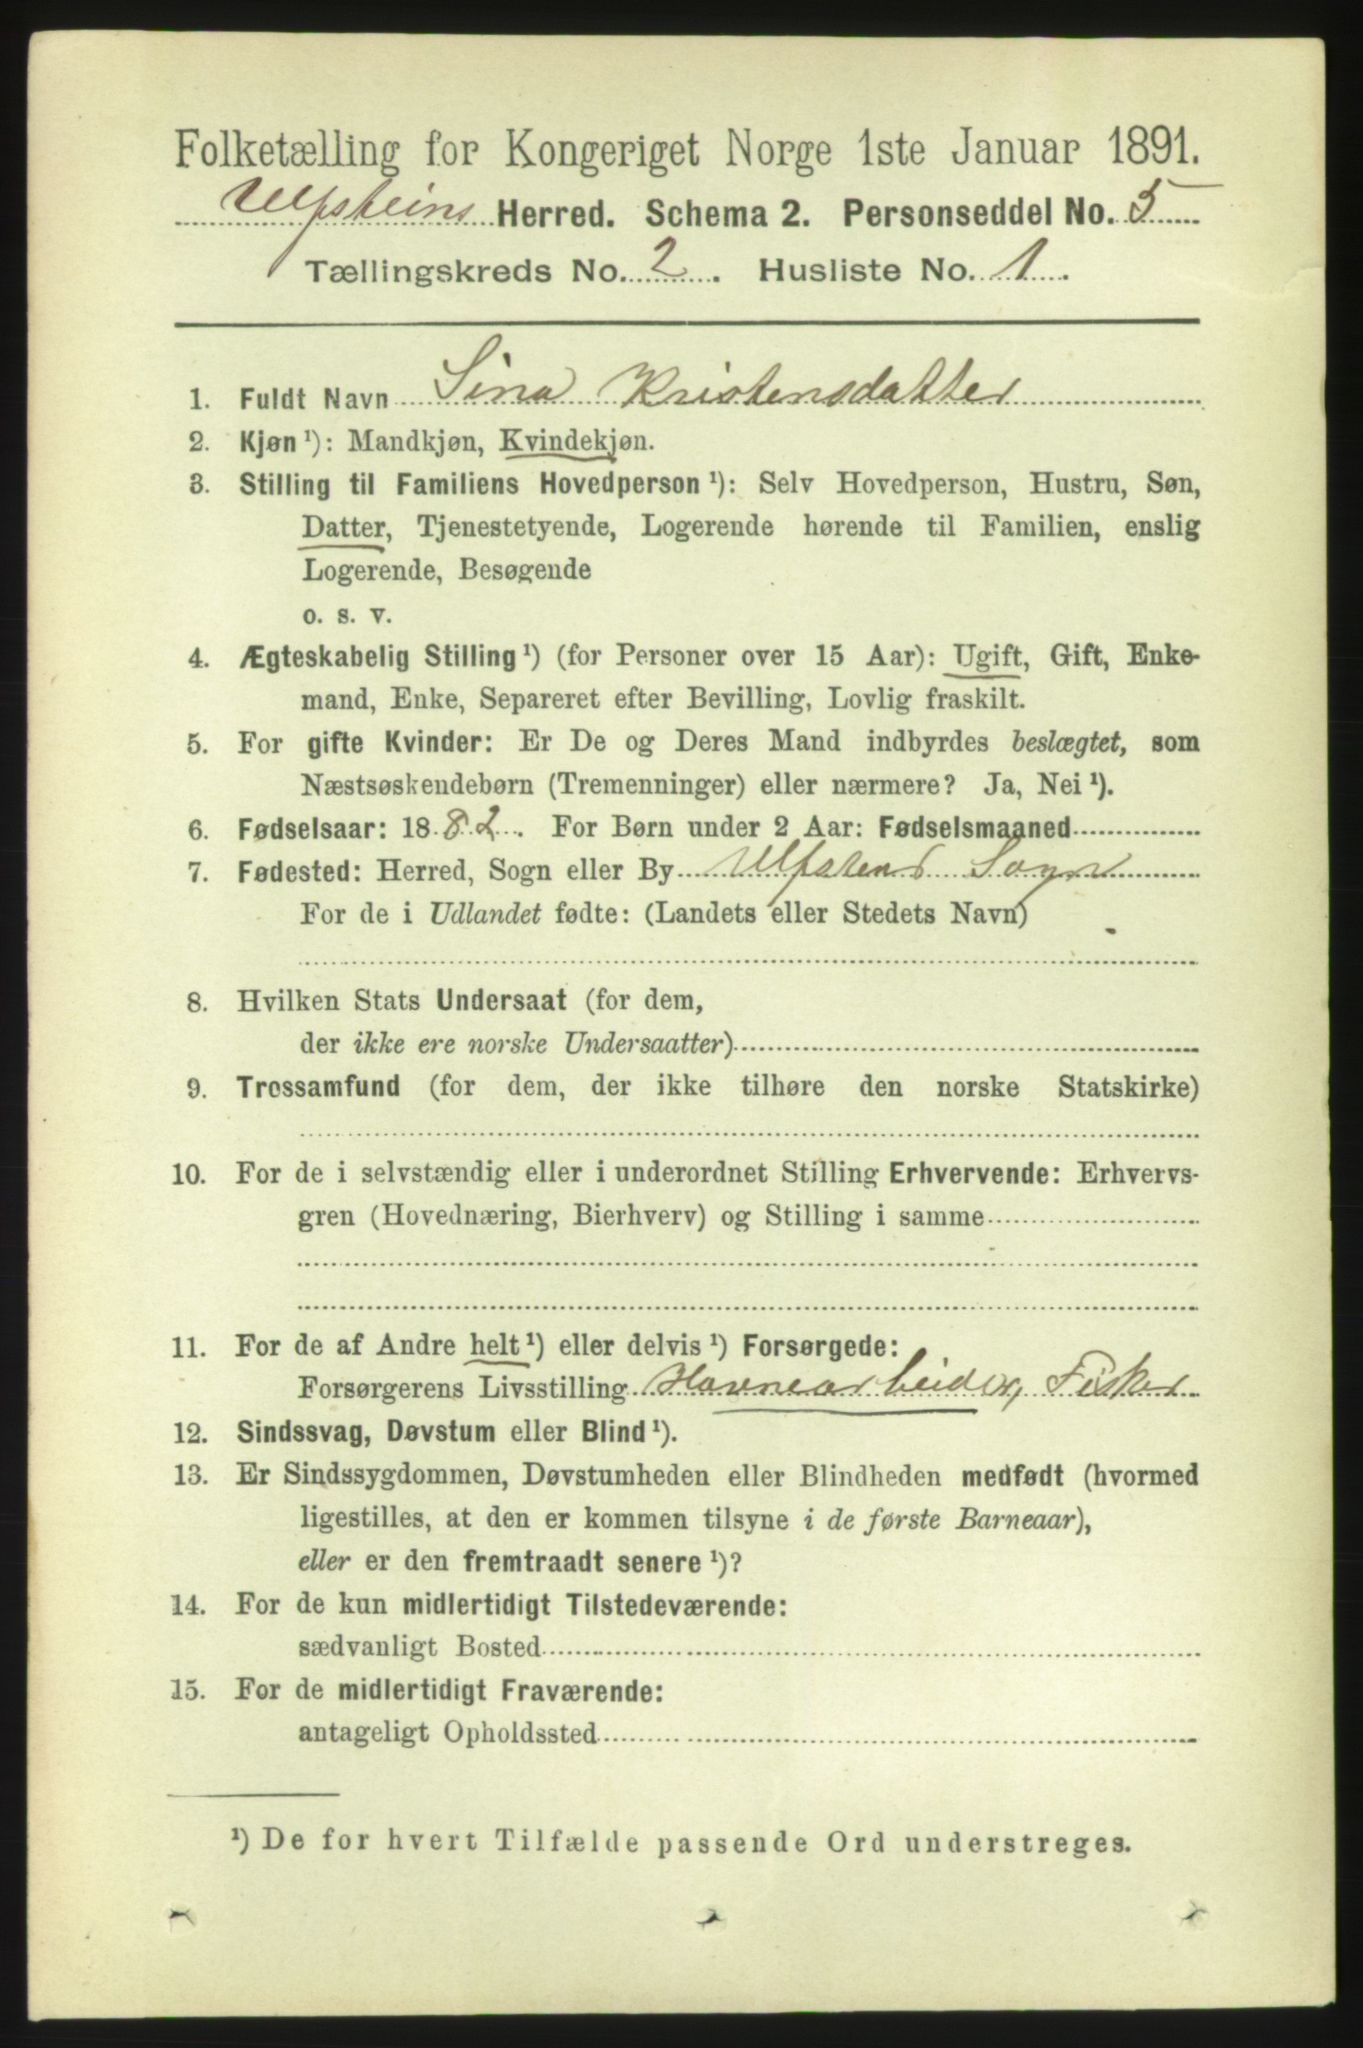 Folketælling for Kongeriget Norge 1ste Januar 1891.
Ulfsteins Herred. Schema 2. Personseddel No. 5
Tællingskreds No. 2. Husliste No. 1.
1. Fuldt Navn Sina Kristensdatter
2. Kjøn ¹): Mandkjøn, Kvindekjøn.
3. Stilling til Familiens Hovedperson ¹): Selv Hovedperson, Hustru, Søn,
Datter, Tjenestetyende, Logerende hørende til Familien, enslig
Logerende, Besøgende
o. s. v.
4. Ægteskabelig Stilling ¹) (for Personer over 15 Aar): Ugift, Gift, Enke-
mand, Enke, Separeret efter Bevilling, Lovlig fraskilt.
5. For gifte Kvinder: Er De og Deres Mand indbyrdes beslægtet, som
Næstsøskendebørn (Tremenninger) eller nærmere? Ja, Nei ¹).
6. Fødselsaar: 1882. For Børn under 2 Aar: Fødselsmaaned
7. Fødested: Herred, Sogn eller By Ulfstens Sogn
For de i Udlandet fødte: (Landets eller Stedets Navn)
8. Hvilken Stats Undersaat (for dem,
der ikke ere norske Undersaatter)
9. Trossamfund (for dem, der ikke tilhøre den norske Statskirke)
10. For de i selvstændig eller i underordnet Stilling Erhvervende: Erhvervs-
gren (Hovednæring, Bierhverv) og Stilling i samme
11. For de af Andre helt ¹) eller delvis ¹) Forsørgede:
Forsørgerens Livsstilling Havnearbeider, Fisker
12. Sindssvag, Døvstum eller Blind ¹).
13. Er Sindssygdommen, Døvstumheden eller Blindheden medfødt (hvormed
ligestilles, at den er kommen tilsyne i de første Barneaar),
eller er den fremtraadt senere ¹)?
14. For de kun midlertidigt Tilstedeværende:
sædvanligt Bosted
15. For de midlertidigt Fraværende:
antageligt Opholdssted
¹) De for hvert Tilfælde passende Ord understreges.